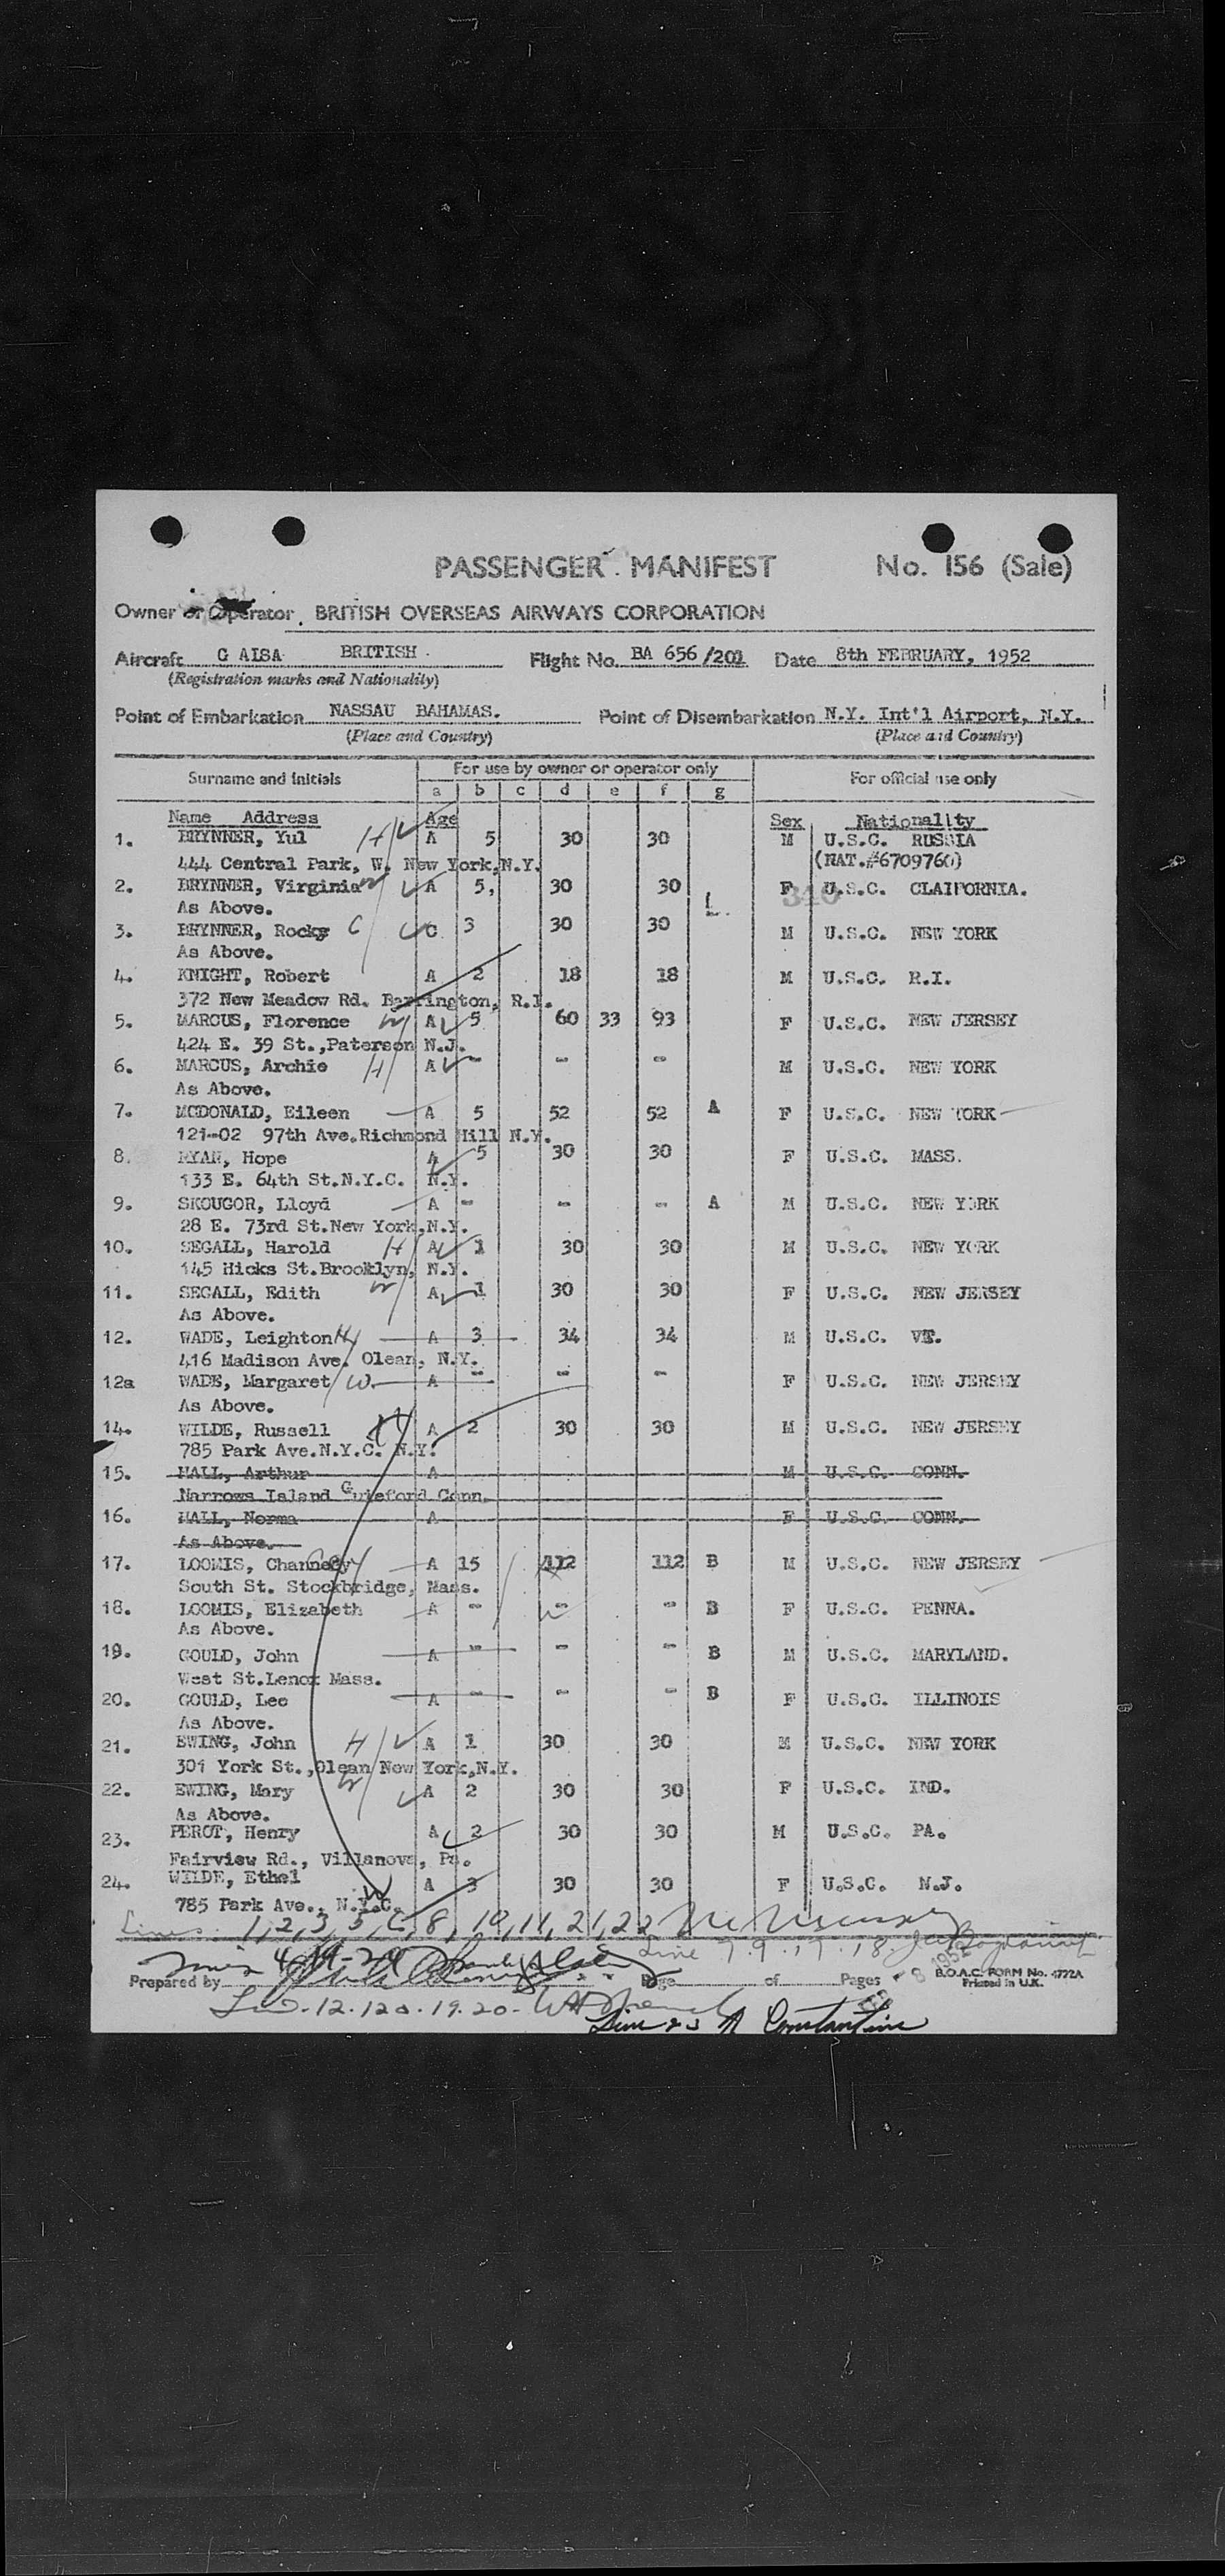 PASSENGER MANIFEST No. 156 (Sale)
Owner or Operator BRITISH OVERSEAS AIRWAYS CORPORATION
Aircraft G ALSA BRITISH. Flight No. BA 656/201 Date 8th FEBRUARY, 1952
(Registration marks and Nationality)
Point of Embarkation NASSAU BAHAMAS. Point of Disembarkation N.Y. Int'l Airport, N.Y.
(Place and Country) (Place and Country)
Surname and initials For use by owner or operator only For official use only
a b c d e f g
Name Address Age Sex Nationality
1. BRYNNER, Yul H A 5 30 30 M U.S.C. RUSSIA
444 Central Park, W. New York,N.Y. (NAT.#6709760)
2. BRYNNER, Virginia W A 5, 30 30 F U.S.C. CLAIFORNIA.
As Above. L. 340
3. BRYNNER, Rocky C C 3 30 30 M U.S.C. NEW YORK
As Above.
4. KNIGHT, Robert A 2 18 18 M U.S.C. R.I.
372 New Meadow Rd. Barrington, R.I.
5. MARCUS, Florence W A 5 60 33 93 F U.S.C. NEW JERSEY
424 E. 39 St.,Paterson N.J.
6. MARCUS, Archie H A - - - M U.S.C. NEW YORK
As Above.
7. MCDONALD, Eileen A 5 52 52 A F U.S.C. NEW YORK
121-02 97th Ave.Richmond Hill N.Y.
8. RYAN, Hope A 5 30 30 F U.S.C. MASS.
133 E. 64th St.N.Y.C. N.Y.
9. SKOUGOR, Lloyd A - - - A M U.S.C. NEW YORK
28 E. 73rd St.New York,N.Y.
10. SEGALL, Harold H A 1 30 30 M U.S.C. NEW YORK
145 Hicks St.Brooklyn, N.Y.
11. SEGALL, Edith W A 1 30 30 F U.S.C. NEW JERSEY
As Above.
12. WADE, Leighton H A 3 34 34 M U.S.C. VT.
416 Madison Ave. Olean, N.Y.
12a WADE, Margaret W. A - - - F U.S.C. NEW JERSEY
As Above.
14. WILDE, Russell H A 2 30 30 M U.S.C. NEW JERSEY
785 Park Ave.N.Y.C. N.Y.
15. HALL, Arthur A M U.S.C. CONN.
Narrows Island Guleford Conn.
16. HALL, Norma A F U.S.C. CONN.
As Above.
17. LOOMIS, A 15 112 112 B M U.S.C. NEW JERSEY
South St. Stockbridge, Mass.
18. LOOMIS, Elizabeth A - - - B F U.S.C. PENNA.
As Above.
19. GOULD, John A - - - B M U.S.C. MARYLAND.
West St.Lenox Mass.
20. GOULD, Lee A - - - B F U.S.C. ILLINOIS
As Above.
21. EWING, John H A 1 30 30 M U.S.C. NEW YORK
301 York St.,Olean New York,N.Y.
22. EWING, Mary W A 2 30 30 F U.S.C. IND.
As Above.
23. PEROT, Henry A 2 30 30 M U.S.C. PA.
Fairview Rd., Villanova, Pa.
24. WILDE, Ethel A 3 30 30 F U.S.C. N.J.
785 Park Ave., N.Y.C. W
Lines. 1, 2, 3, 5, 6, 8, 10, 11, 21, 22
Line 7.9.17.18.
Prepared by Page of Pages B.O.A.C. FORM No. 4772A
Printed in U.K.
Line.12.12a.19.20.
Line 23 A Constantine